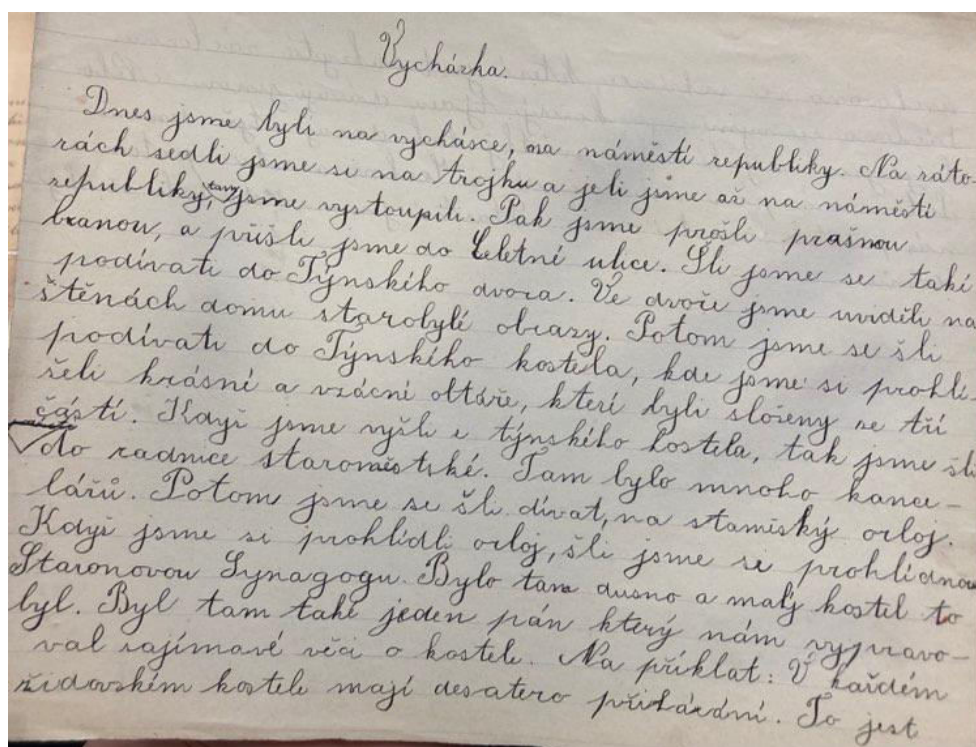 Vycházka.
Dnes jsme byli na vycházce, na náměstí republiky. Na ráto-
rách sedli jsme si na trojku a jeli jsme až na náměstí
republiky, tam jsme vystoupili. Pak jsme prošli prašnou
branou, a přišli jsme do Celetné ulice. Šli jsme se také
podívati do Týnského dvora. Ve dvoře jsme uviděli na
štěnách domu starobylé obrazy. Potom jsme se šli
podívati do Týnského kostela, kde jsme si prohlí-
želi krásné a vzácné oltáře, které byli složeny ze tří
částí. Když jsme vyšli z týnského kostela, tak jsme šli
do radnice staroměstské. Tam bylo mnoho kance-
lářů. Potom jsme se šli dívat, na stamiský orloj.
Když jsme si prohlídli orloj, šli jsme si prohlídnou
Staronovou Synagogu. Bylo tam dusno a malý kostel to
byl. Byl tam také jeden pán který nám vypravo-
val zajímavé věci o kostele. Na příklat: V každém
židovském kostele mají desatero přikázání. To jest